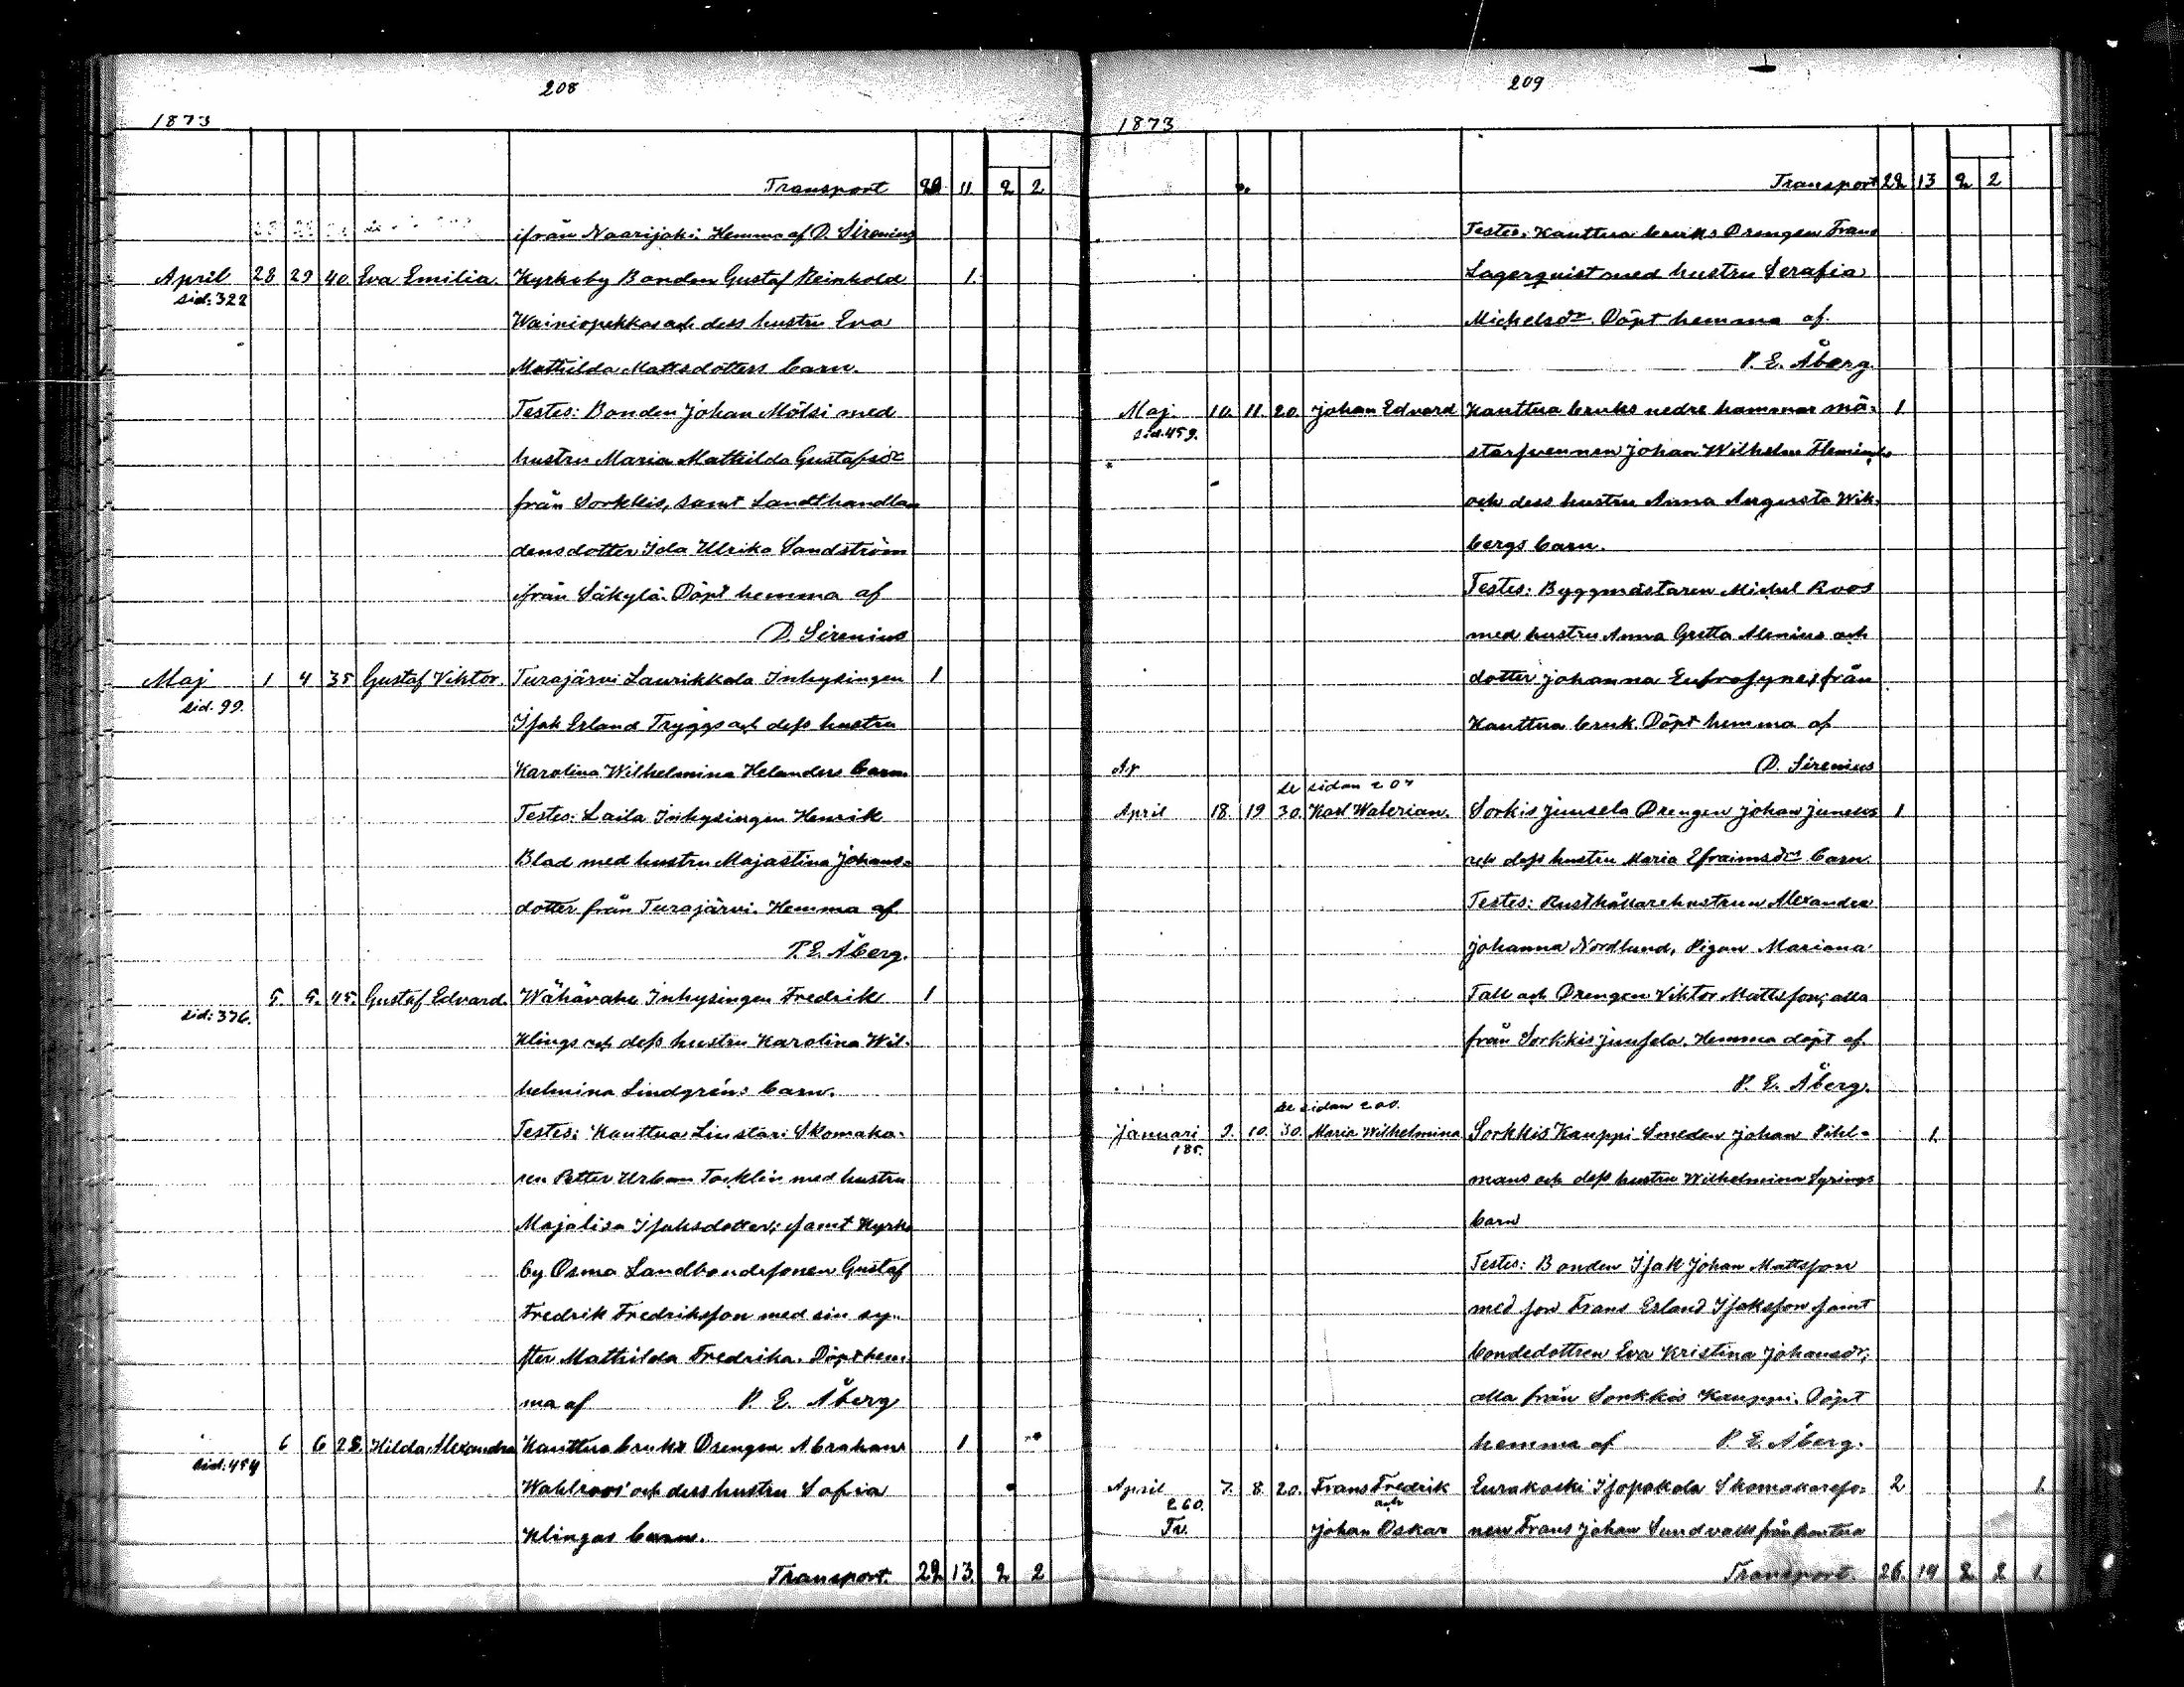 208
1873
Transport 20 11 2 2
ifrån Naarijoki. Hemma af D. Sirenius
April 28 29 40 Eva Emilia. Kyrkoby Bonden Gustaf Reinhold 1.
sid: 322
Wainiopekkas och dess hustru Eva
Mathilda Mattsdotters barn.
Testes: Bonden Johan Mölsi med
hustru Maria Mathilda Gustafsdr
från Sorkkis, samt Landthandlan
densdotter Ida Ulrika Sandström
ifrån Säkylä. Döpt hemma af
D. Sirenius
Maj 1 4 35 Gustaf Viktor. Turajärvi Laurikkala Inhysingen 1
sid. 99.
Isak Erland Tryggs och dess hustru
Karolina Wilhelmina Helanders barn
Testes: Laila Inhysingen Henrik
Blad med hustru Majastina Johans-
dotter från Turajärvi. Hemma af
P. E. Åberg.
5. 5. 45. Gustaf Edvard. Wähävahe Inhysingen Fredrik 1
sid: 376.
Klings och dess hustru Karolina Wil-
helmina Lindgréns barn.
Testes: Kauttua Linstari Skomaka-
ren Petter Urban Tocklin med hustru
Majalisa Isaksdotter; samt Kyrko
by Osma Landbondesonen Gustaf
Fredrik Fredriksson med sin sy-
ster Mathilda Fredrika. Döpt hem-
ma af P. E. Åberg
6 6 28. Hilda Alexandra Kauttua bruks Drengen Abraham 1
sid: 454
Wahlroos' och dess hustru Sofia
Klingas barn.
Transport. 22 13. 2 2
209
1873
Transport 22 13 2 2
Testes: Kauttua bruks Drengen Frans
Lagerquist med hustru Serafia
Michelsdr. Döpt hemma af
P. E. Åberg.
Maj. 10. 11. 20. Johan Edvard Kauttua bruks nedre hammar mä- 1
sid. 459.
starsvennen Johan Wilhelm Flemings
och dess hustru Anna Augusta Wik-
bergs barn.
Testes: Byggmästaren Michel Roos
med hustru Anna Gretta Alenius och
dotter Johanna Eufrosyne, från
Kauttua bruk. Döpt hemma af
Ap D. Sirenius
se sidan 207
April 18. 19 30. Karl Walerian. Sorkis Juusela Drengen Johan Junells 1
och dess hustru Maria Efraimsdrs barn.
Testes: Rusthållarehustrun Alexandra
Johanna Nordlund, Pigan Mariana
Tall och Drengen Viktor Mattsson; alla
från Sorkkis Juusela. Hemma döpt af
P. E. Åberg.
se sidan 200.
Januari 9. 10. 30. Maria Wilhelmina Sorkkis Kauppi Smeden Johan Pihl- 1.
185.
mans och dess hustru Wilhelmina Syrings
barn
Testes: Bonden Isak Johan Mattsson
med son Frans Erland Isaksson samt
bondedottren Eva Kristina Johansdr;
alla från Sorkkis Kauppi. Döpt
hemma af P. E. Åberg.
April 7. 8. 20. Frans Fredrik Eurakoski Isopakola Skomakareso- 2 1.
260. och
Tv. Johan Oskar nen Frans Johan Sundvalls från Kauttua
Transport. 26. 14 2 2 1.